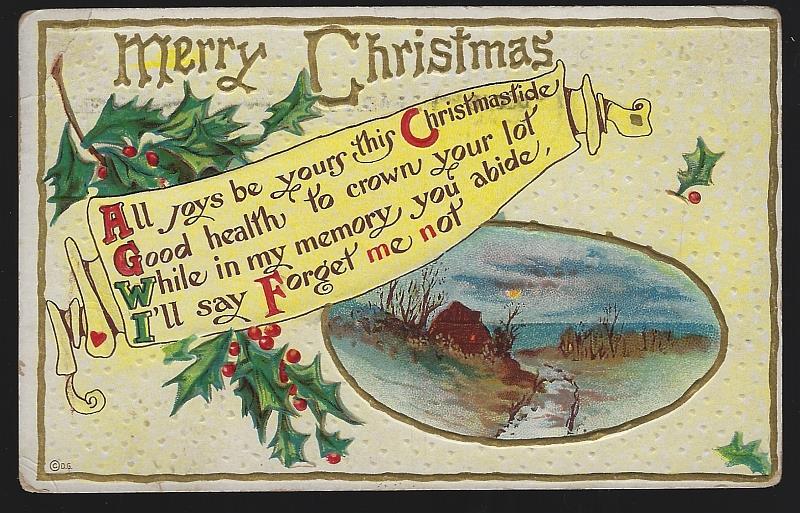 Merry Christmas
All joys be yours this Christmastide
Good health to crown your lot
While in my memory you abide,
I'll say Forget me not
© D.G.